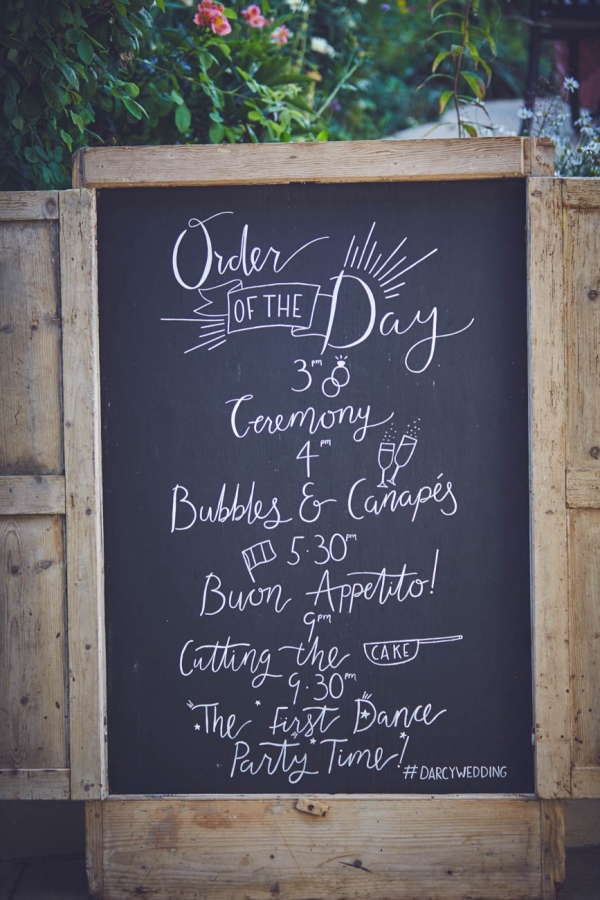 Order
OF THE
Day
3pm
Ceremony
4pm
Bubbles & Canapés
5·30pm
Buon Appetito!
9pm
Cutting the CAKE
9·30pm
The First Dance
Party Time!
#DARCYWEDDING